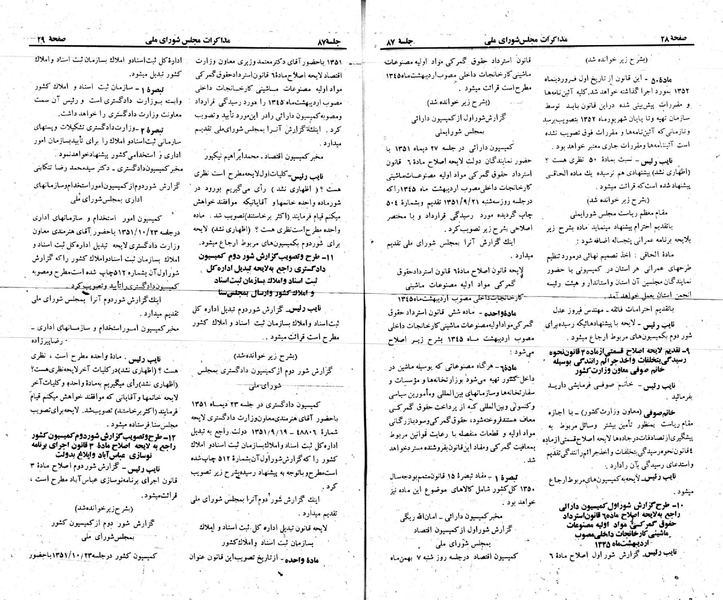 صفحه ۲۸
مذاکرات مجلس شورای ملی
جلسه ۸۷
(بشرح زیر خوانده شد)
ماده ۵۰ - این قانون از تاریخ اول فروردینماه
۱۳۵۲ بمورد اجرا گذاشته خواهد شد. کلیه آئین‌نامه‌ها
و مقررات پیش‌بینی شده دراین قانون باید توسط
سازمان تهیه وتا پایان شهریورماه ۱۳۵۲ بتصویب برسد
و تازمانی‌که آئین‌نامه‌ها و مقررات فوق تصویب نشده
است آئیننامه‌ها ومقررات جاری معتبر خواهد بود.
نایب رئیس - نسبت بماده ۵۰ نظری هست؟
(اظهاری نشد) پیشنهادی هم نرسیده یک ماده الحاقی
پیشنهاد شده است که قرائت میشود.
(بشرح زیر خوانده شد)
مقام معظم ریاست مجلس شورایملی
باتقدیم احترام پیشنهاد مینماید ماده بشرح زیر
بلایحه برنامه عمرانی پنجساله اضافه شود:
ماده الحاقی: اخذ تصمیم نهائی درمورد تنظیم
طرحهای عمرانی هر استان در کمیسیونی با حضور
نمایندگان مجلسین آن استان واستاندار و هیئت رئیسه
انجمن استان بعمل خواهد آمد.
باتقدیم احترامات فائقه - مهندس فیروز عدل
نایب رئیس - لایحه با پیشنهادهائیکه رسیده برای
شور دوم بکمیسیونهای مربوط ارجاع میشود.
۹- تقدیم لایحه اصلاح قسمتی از ماده ۳ قانون نحوه
رسیدگی بتخلفات واخذ جرائم رانندگی بوسیله
خانم صوفی معاون وزارت کشور
نایب رئیس - خانم صوفی فرمایشی دارید
بفرمائید.
خانم صوفی (معاون وزارت کشور) - با اجازه
مقام ریاست بمنظور تأمین بیشتر وسائل مربوط به
پیشگیری از تصادفات درجاده‌ها لایحه اصلاح قسمتی از ماده
۳ قانون نحوه رسیدگی بتخلفات واخذ جرائم رانندگی تقدیم
و استدعای رسیدگی بآن را دارد.
نایب رئیس - لایحه به کمیسیونهای مربوط ارجاع
میشود.
۱۰- طرح گزارش شوراول کمیسیون دارائی
راجع به لایحه اصلاح ماده ۶ قانون استرداد
حقوق گمرکی مواد اولیه مصنوعات
ماشینی کارخانجات داخلی مصوب
اردیبهشت ماه ۱۳۴۵
نایب رئیس - گزارش شور اول اصلاح ماده ۶
قانون استرداد حقوق گمرکی مواد اولیه مصنوعات
ماشینی کارخانجات داخلی مصوب اردیبهشت ماه ۱۳۴۵
مطرح است قرائت میشود.
(بشرح زیر خوانده شد)
گزارش شور اول از کمیسیون دارائی
بمجلس شورایملی
کمیسیون دارائی در جلسه ۲۷ دیماه ۱۳۵۱ با
حضور نمایندگان دولت لایحه اصلاح ماده ۶ قانون
استرداد حقوق گمرکی مواد اولیه مصنوعات ماشینی
کارخانجات داخلی مصوب اردیبهشت ماه ۱۳۴۵ را که
درجلسه روز سه‌شنبه ۱۳۵۱/۹/۲۱ تقدیم و بشماره ۵۰۴
چاپ گردیده مورد رسیدگی قرارداد و با مختصر
اصلاحی بشرح زیر تصویب کرد.
اینک گزارش آنرا بمجلس شورای ملی تقدیم
میدارد.
لایحه قانون اصلاح ماده ۶ قانون استرداد حقوق
گمرکی مواد اولیه مصنوعات ماشینی
کارخانجات داخلی مصوب اردیبهشت ماه ۱۳۴۵
ماده واحده - ماده شش قانون استرداد حقوق
گمرکی مواد اولیه مصنوعات ماشینی کارخانجات
داخلی مصوب اردیبهشت ماه ۱۳۴۵ بشرح زیر اصلاح
میشود:
ماده ۶- هرگاه مصنوعاتی که بوسیله ماشین در
داخل کشور تهیه می‌شود بوزارتخانه‌ها و مؤسسات و
سفارتخانه‌ها وسازمانهای بین‌المللی ومأمورین سیاسی
وکنسولی وبین‌المللی که از پرداخت حقوق گمرکی
معاف هستند فروخته شود، حقوق گمرکی وسود بازرگانی
مواد اولیه و قطعات منفصله با رعایت قوانین مربوط
بمعافیت گمرکی ومفاد این قانون بفروشنده مسترد خواهد
شد.
تبصره ۱- مفاد تبصره ۱۵ قانون متمم بودجه سال
۱۳۵۰ کل کشور شامل کالاهای موضوع این ماده نیز
خواهد بود.
مخبر کمیسیون دارائی - امان‌الله ریگی
گزارش شور اول از کمیسیون اقتصاد
بمجلس شورای ملی
کمیسیون اقتصاد درجلسه روز شنبه ۷ بهمن‌ماه
جلسه ۸۷
مذاکرات مجلس شورای ملی
صفحه ۲۹
۱۳۵۱ باحضور آقای دکتر معتمد وزیری معاون وزارت
اقتصاد لایحه اصلاح ماده ۶ قانون استرداد حقوق گمرکی
مواد اولیه مصنوعات ماشینی کارخانجات داخلی
مصوب اردیبهشت ماه ۱۳۴۵ را مورد رسیدگی قرارداد
ومصوبه کمیسیون دارائی رادر این مورد تأیید وتصویب
کرد. اینک گزارش آنرا بمجلس شورای ملی تقدیم
میدارد.
مخبر کمیسیون اقتصاد. محمد ابراهیم نیکپور
نایب رئیس - کلیات اول لایحه مطرح است نظری
هست؟ (اظهاری نشد) رأی می‌گیریم بورود در
ماده واحده خانمها و آقایانیکه موافقند خواهش
میکنم قیام فرمایند (اکثر برخاستند) تصویب شد. ماده
واحده مطرح است نظری هست؟ (اظهاری نشد) لایحه
برای شور دوم بکمیسیون‌های مربوط ارجاع میشود.
۱۱- طرح وتصویب گزارش شور دوم کمیسیون
دادگستری راجع به لایحه تبدیل اداره کل
ثبت اسناد واملاک بسازمان ثبت اسناد
و املاک کشور وارسال بمجلس سنا
نایب رئیس - گزارش شور دوم لایحه تبدیل اداره کل
ثبت اسناد واملاک بسازمان ثبت اسناد و املاک کشور
مطرح است قرائت میشود.
(بشرح زیر خوانده شد)
گزارش شور دوم از کمیسیون دادگستری بمجلس
شورای ملی
کمیسیون دادگستری در جلسه ۲۳ دیماه ۱۳۵۱
باحضور آقای هنرمندی معاون وزارت دادگستری لایحه
شماره ۴۸۸۰۶ - ۱۳۵۱/۹/۱۹ دولت راجع به تبدیل
اداره کل ثبت اسناد واملاک بسازمان ثبت اسناد واملاک
کشور را که گزارش شور اول آن بشماره ۵۱۲ چاپ شده
است مطرح وباتوجه به پیشنهاد رسیده بشرح زیر تصویب
کرد.
اینک گزارش شور دوم آنرا بمجلس شورای ملی
تقدیم میدارد.
لایحه قانون تبدیل اداره کل ثبت اسناد و املاک
بسازمان ثبت اسناد و املاک کشور
ماده واحده - ازتاریخ تصویب این قانون عنوان
اداره کل ثبت اسناد واملاک بسازمان ثبت اسناد واملاک
کشور تبدیل میشود.
تبصره ۱- سازمان ثبت اسناد و املاک کشور
وابسته بوزارت دادگستری است و رئیس آن سمت
معاون وزارت دادگستری را خواهد داشت.
تبصره ۲- وزارت دادگستری تشکیلات وپستهای
سازمانی ثبت اسناد و املاک را برای تأیید بسازمان امور
اداری و استخدامی کشور پیشنهاد خواهد نمود.
مخبر کمیسیون دادگستری - دکتر سید محمد رضا تنکابنی
گزارش شور دوم از کمیسیون امور استخدام و سازمانهای
اداری بمجلس شورای ملی
کمیسیون امور استخدام و سازمانهای اداری
درجلسه ۱۳۵۱/۱۰/۲۳ باحضور آقای هنرمندی معاون
وزارت دادگستری لایحه تبدیل اداره کل ثبت اسناد و
املاک بسازمان ثبت اسناد واملاک کشور را که گزارش
شور اول آن بشماره ۵۱۲ چاپ شده است مطرح و مصوبه
کمیسیون دادگستری را تأیید وتصویب کرد.
اینک گزارش شور دوم آنرا بمجلس شورای ملی
تقدیم میدارد.
مخبر کمیسیون امور استخدام و سازمانهای اداری -
رضا پیرزاده
نایب رئیس - ماده واحده مطرح است، نظری
هست؟ (اظهاری نشد) در کلیات آخر لایحه نظری هست؟
(اظهاری نشد) رأی میگیریم به ماده واحده وکلیات آخر
لایحه خانمها و آقایانی که موافقند خواهش میکنم قیام
فرمایند (اکثر برخاستند). تصویب شد. لایحه برای تصویب
مجلس سنا فرستاده میشود.
۱۲- طرح وتصویب گزارش شور دوم کمیسیون کشور
راجع به لایحه اصلاح ماده ۳ قانون اجرای برنامه
نوسازی عباس‌آباد وابلاغ بدولت
نایب رئیس - گزارش شور دوم اصلاح ماده ۳
قانون اجرای برنامه نوسازی عباس‌آباد مطرح است،
قرائت میشود.
(بشرح زیر خوانده شد)
گزارش شور دوم از کمیسیون کشور
بمجلس شورای ملی
کمیسیون کشور در جلسه ۱۳۵۱/۱۰/۲۳ باحضور